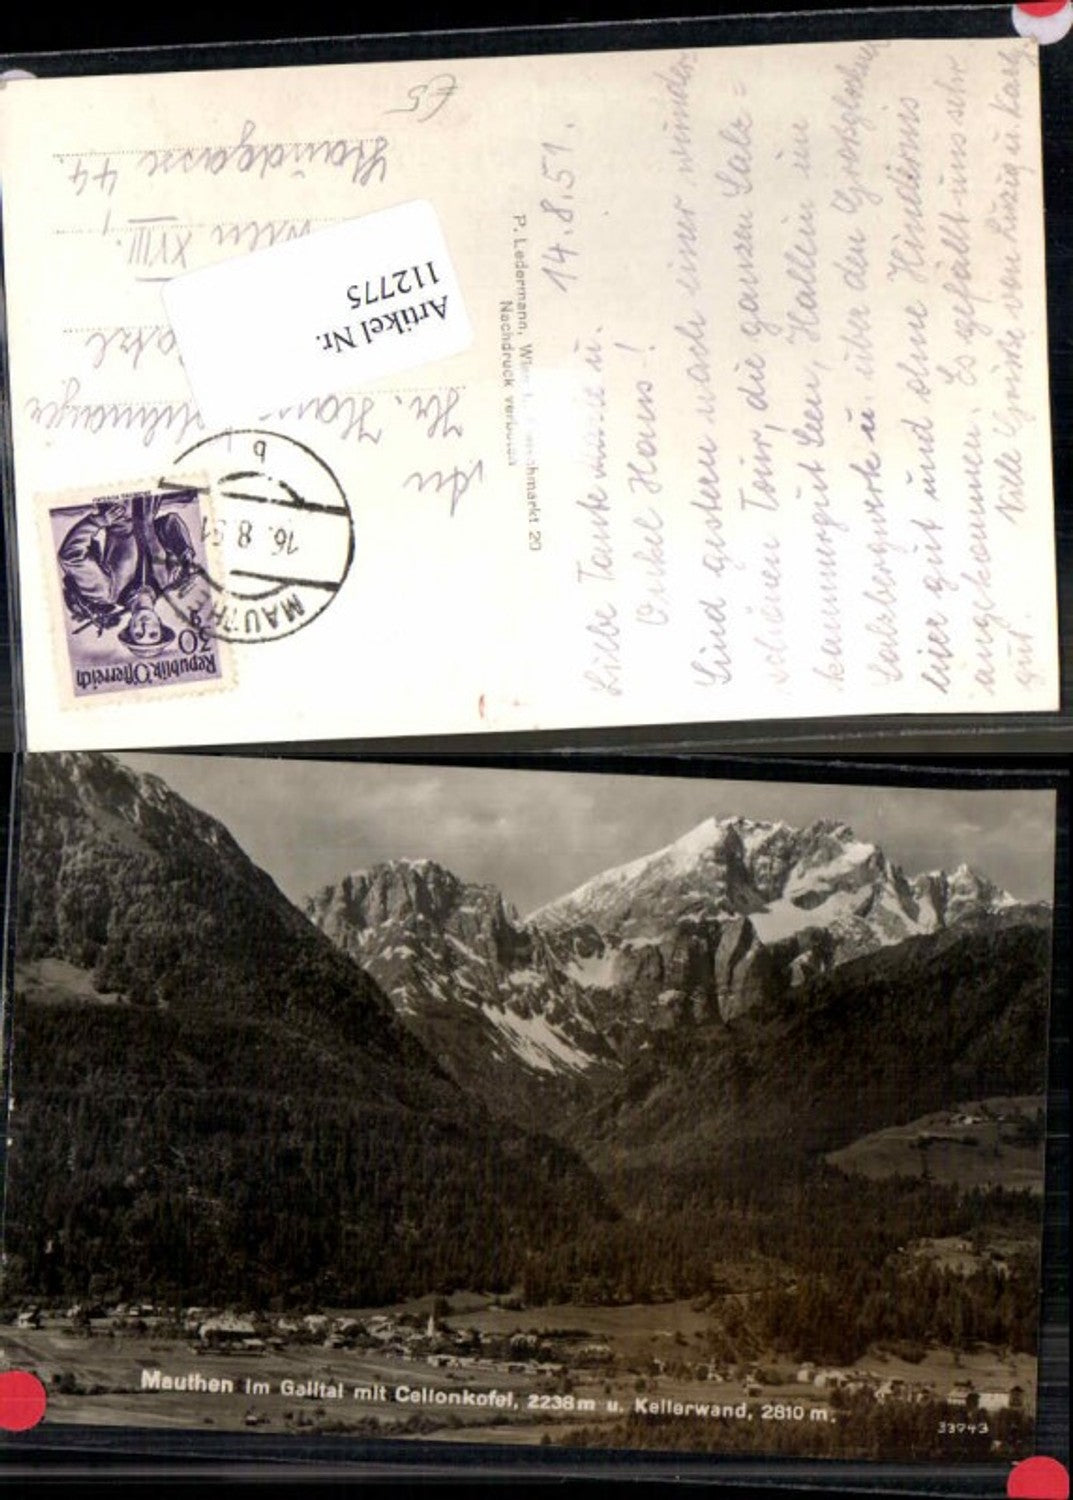 14.8.51.
Liebe Tante u.
Onkel Hans!
Sind gestern nach einer wunder
schönen Tour, die ganzen Salz=
kammergut Seen, Hallein im
Salzbergwerk u. über den Grossglockner
hier gut und ohne Hindernis
angekommen. Es gefällt uns sehr
gut. Viele Grüsse von
P. Ledermann, Wien
Nachdruck verboten
An
Hr.
Wien XVIII.,
44.
€5
Artikel Nr.
112775
Republik Österreich
30
MAUTHEN
16. 8 51
b
Mauthen im Gailtal mit Cellonkofel, 2238 m u. Kellerwand, 2810 m.
33743